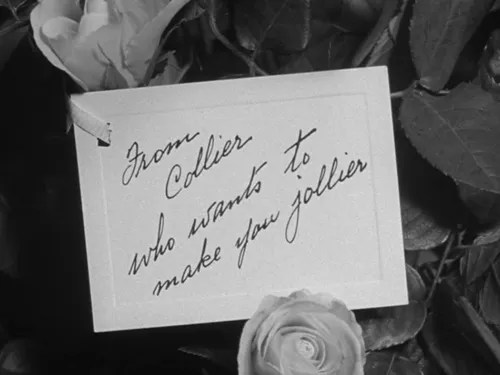 From
Collier
who wants to
make you jollier